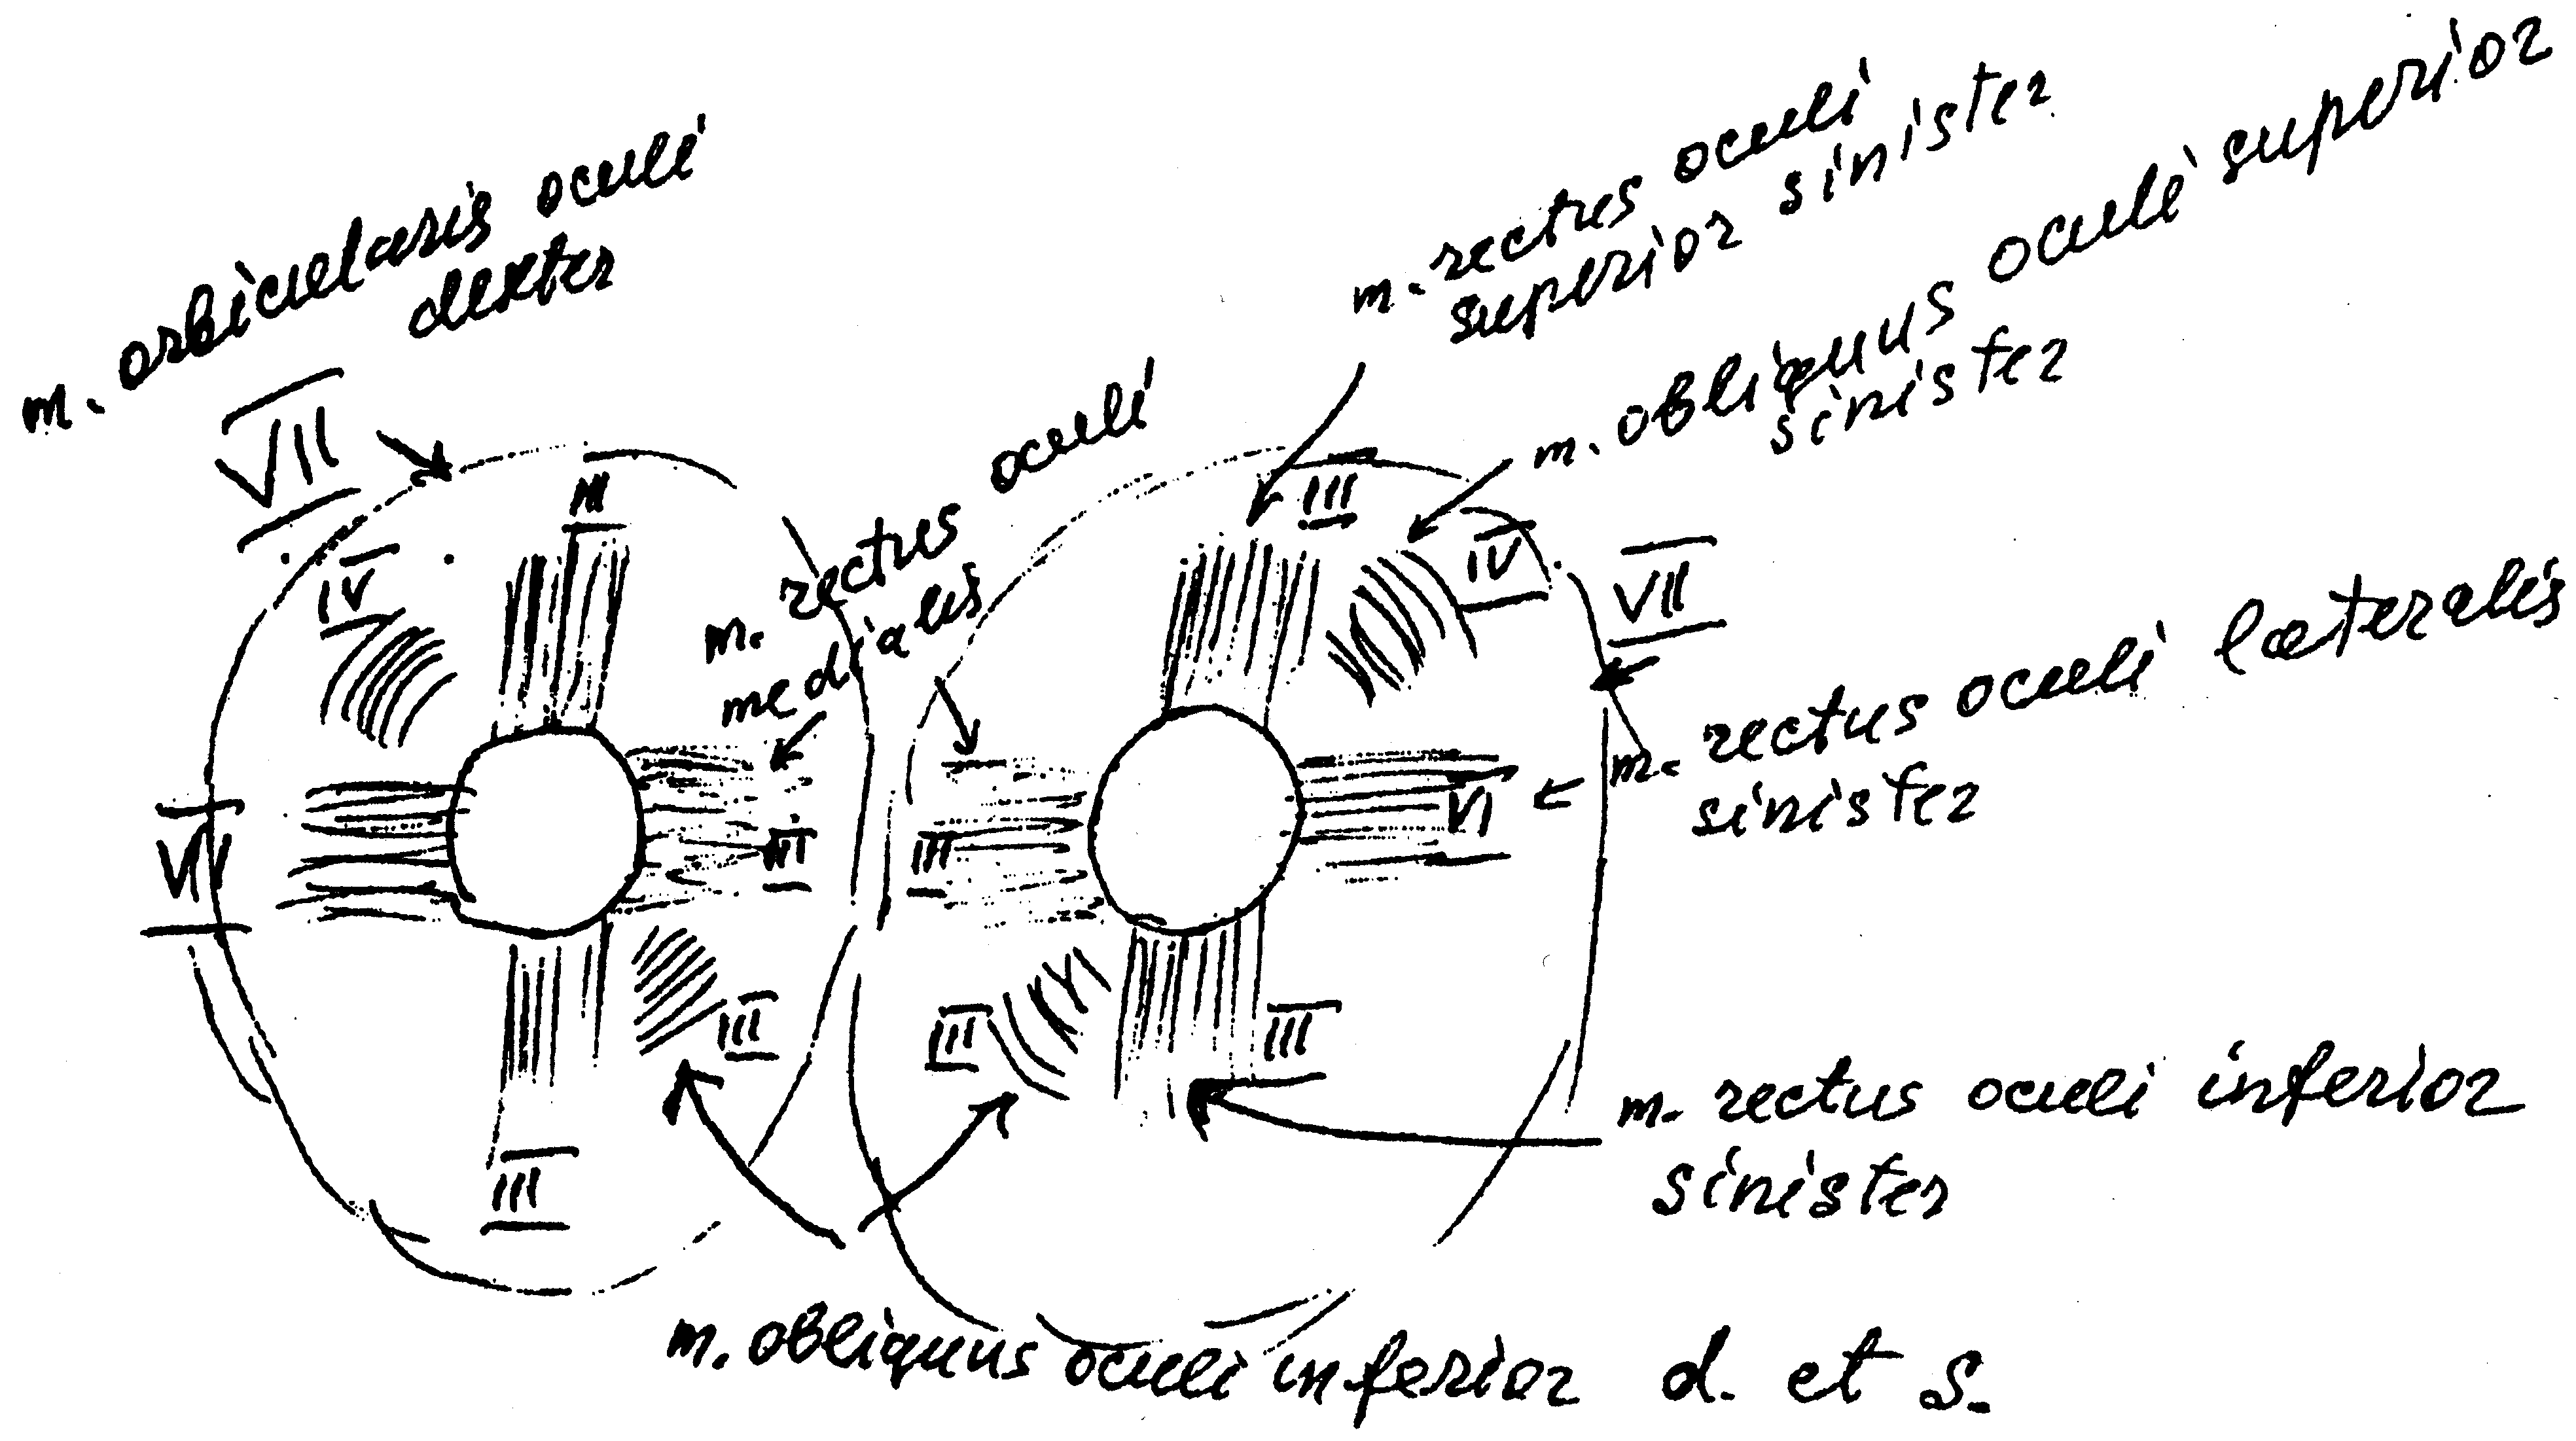 m. orbicularis oculi
dexter
VII
m. rectus oculi
superior sinister
m. obliquus oculi superior
sinister
III
IV
m. rectus oculi
medialis
III
IV
VII
m. rectus oculi lateralis
sinister
III
III
VI
III
III
III
III
m. rectus oculi inferior
sinister
m. obliquus oculi inferior d. et s.